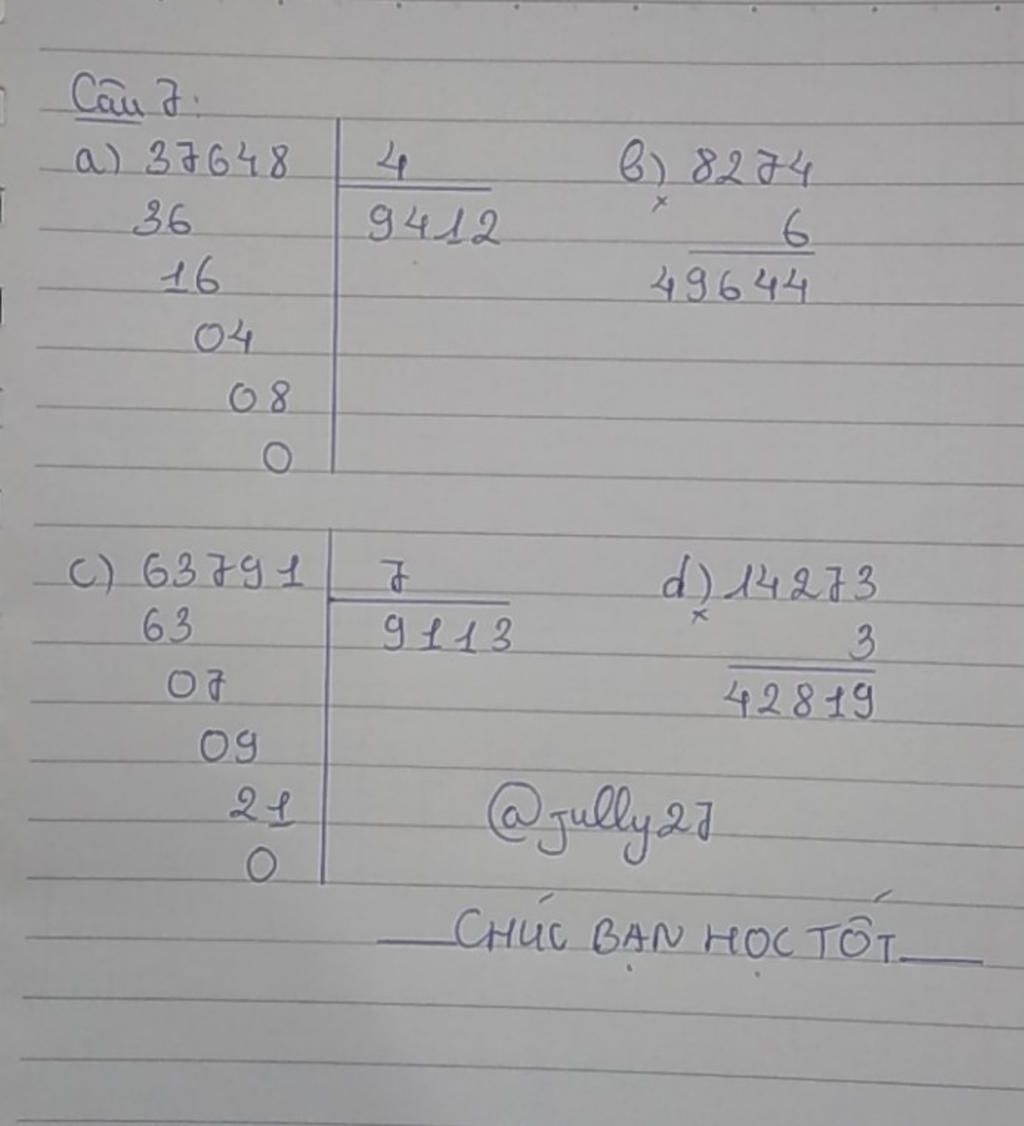 Câu 7:
a) 37648 4 b) 8274
36 9412 x 6
16 49644
04
08
0
c) 63791 7 d) 14273
63 9113 x 3
07 42819
09
21
0
@jully27
CHÚC BẠN HỌC TỐT